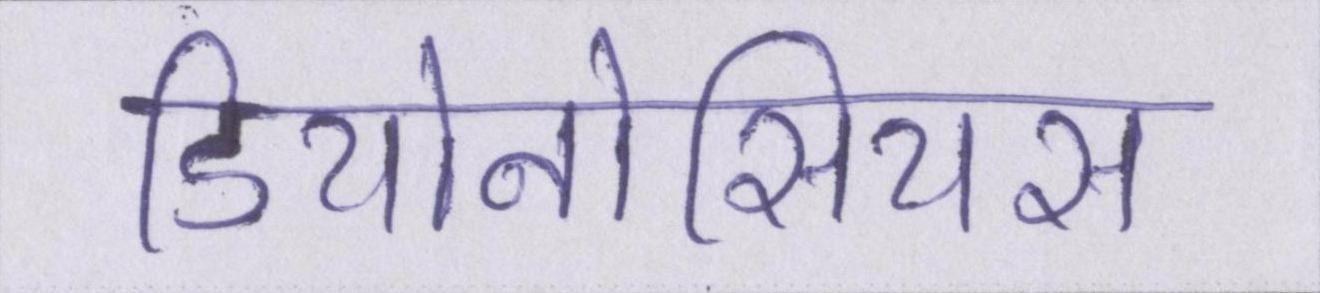 डियोनोसियस